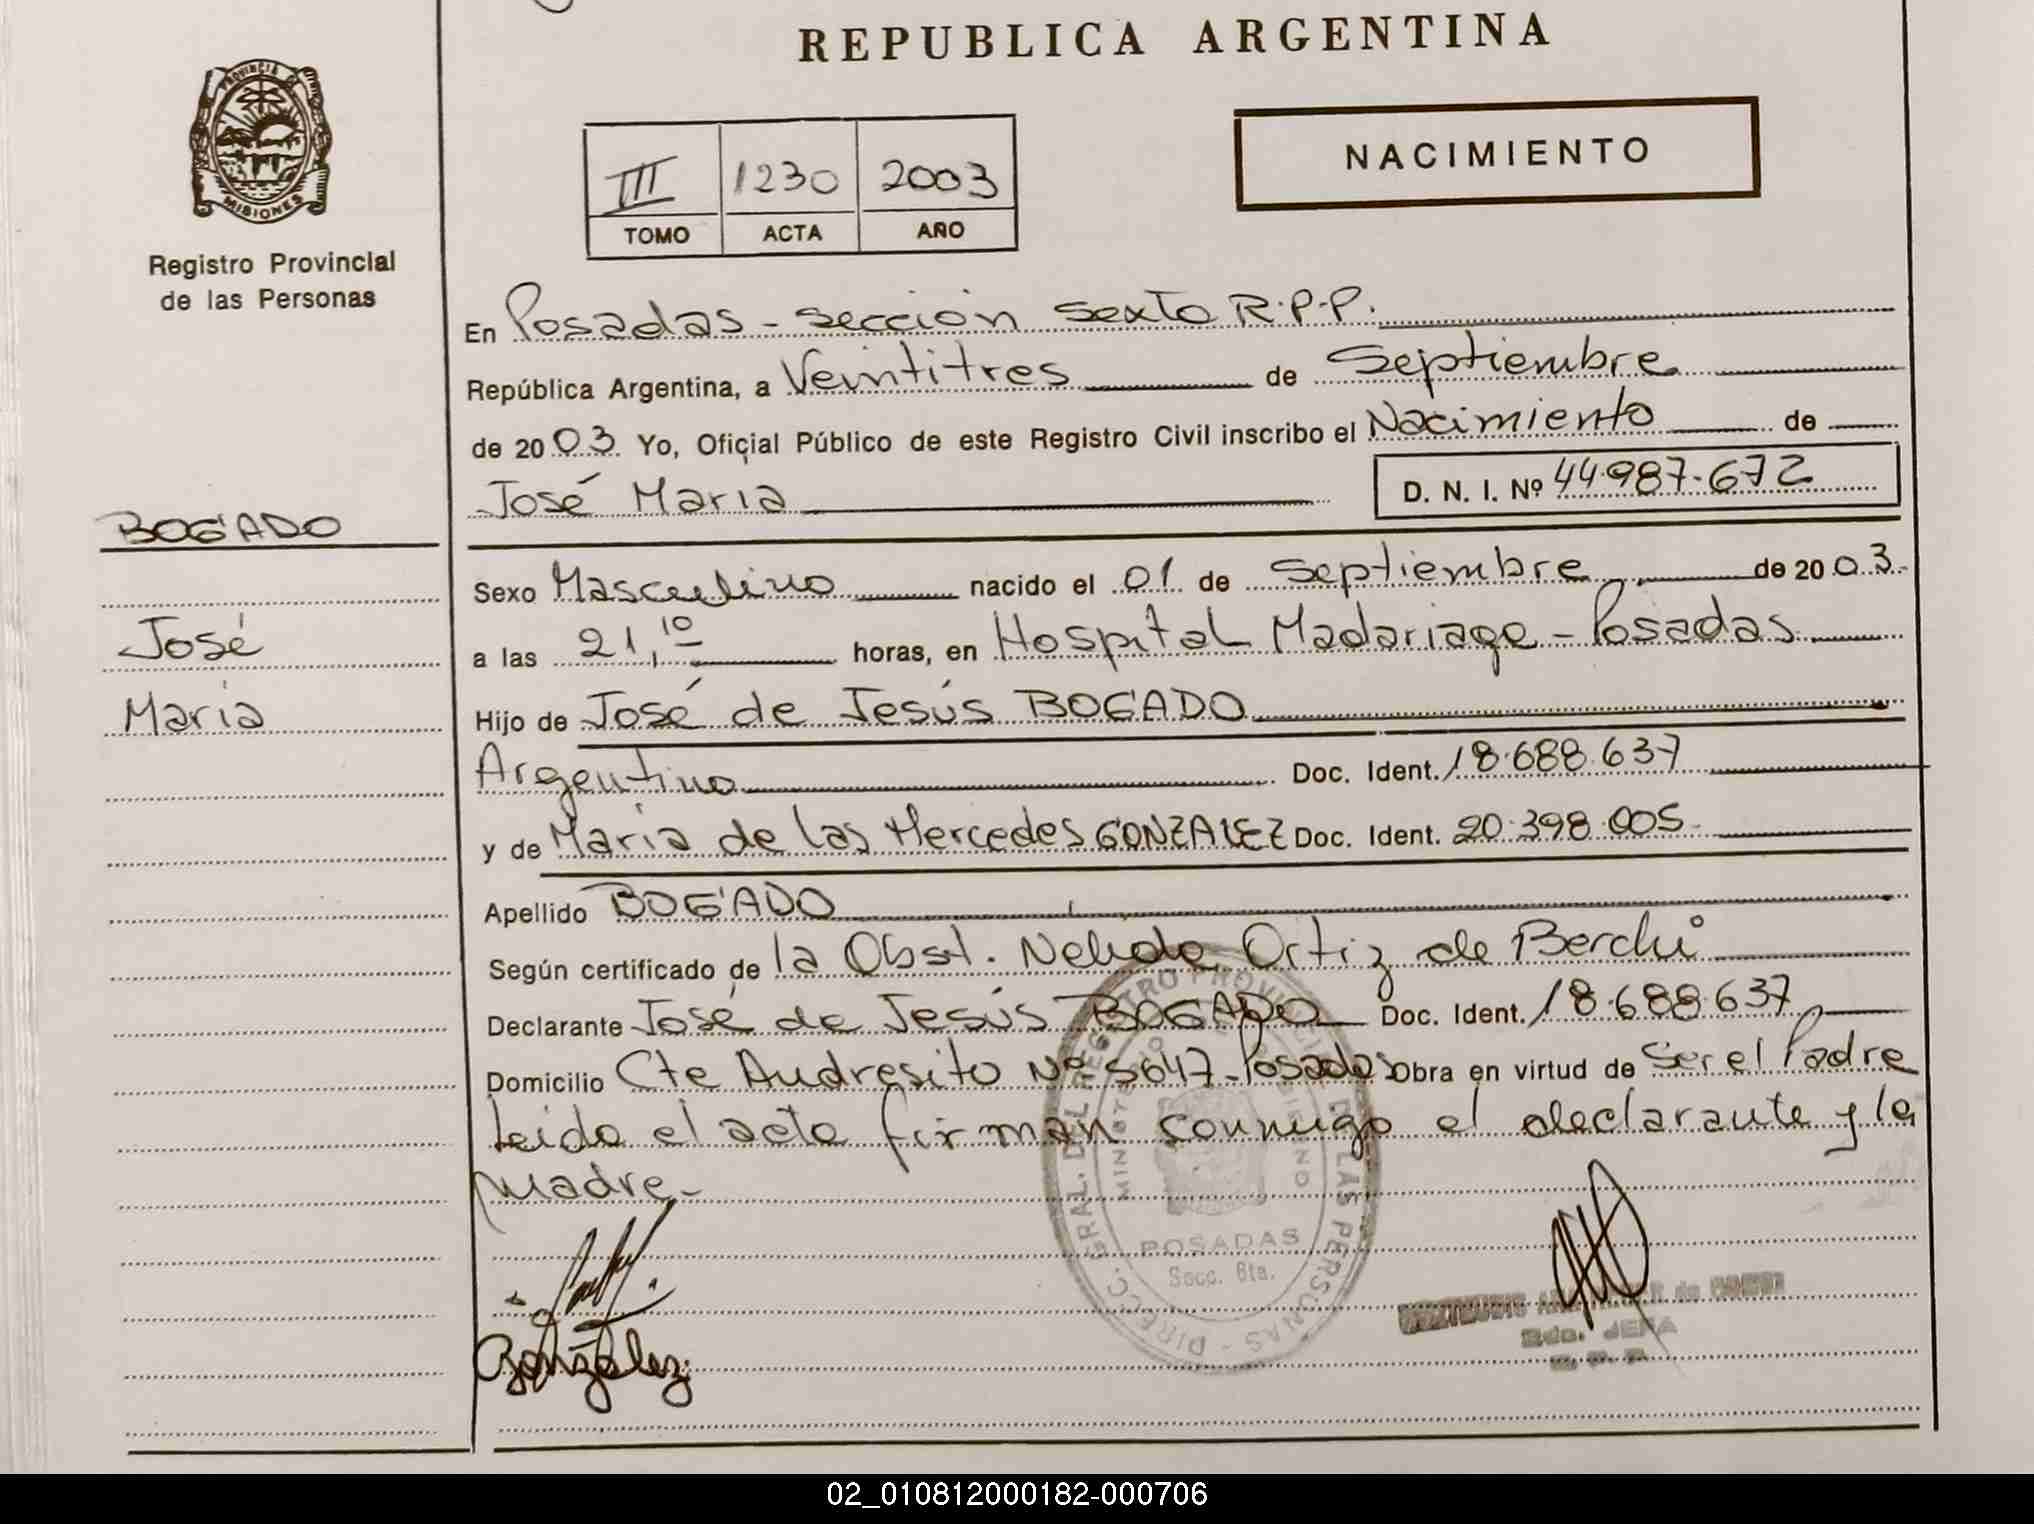 REPUBLICA ARGENTINA
PROVINCIA DE
MISIONES
Registro Provincial
de las Personas
NACIMIENTO
III 1230 2003
TOMO ACTA AÑO
En Posadas - sección sexta R.P.P.
República Argentina, a Veintitres de Septiembre
de 2003 Yo, Oficial Público de este Registro Civil inscribo el Nacimiento de
José María D. N. I. Nº 44.987.672
BOGADO
José
María
Sexo Masculino nacido el 01 de Septiembre de 2003.
a las 21,10 horas, en Hospital Madariaga - Posadas
Hijo de José de Jesús BOGADO
Argentino Doc. Ident. 18.688.637
y de María de las Mercedes GONZALEZ Doc. Ident. 20.398.005
Apellido BOGADO
Según certificado de la Obst. Nelida Ortiz de Berchi
Declarante José de Jesús BOGADO Doc. Ident. 18.688.637
Domicilio Cte Andresito Nº 5647-Posadas Obra en virtud de Ser el Padre
Leida el acta firman conmigo el declarante y la
Madre.-
DIRECC. GRAL. DEL REGISTRO PROVINCIAL DE LAS PERSONAS
POSADAS
Secc. 6ta.
González
JEFA
02_010812000182-000706